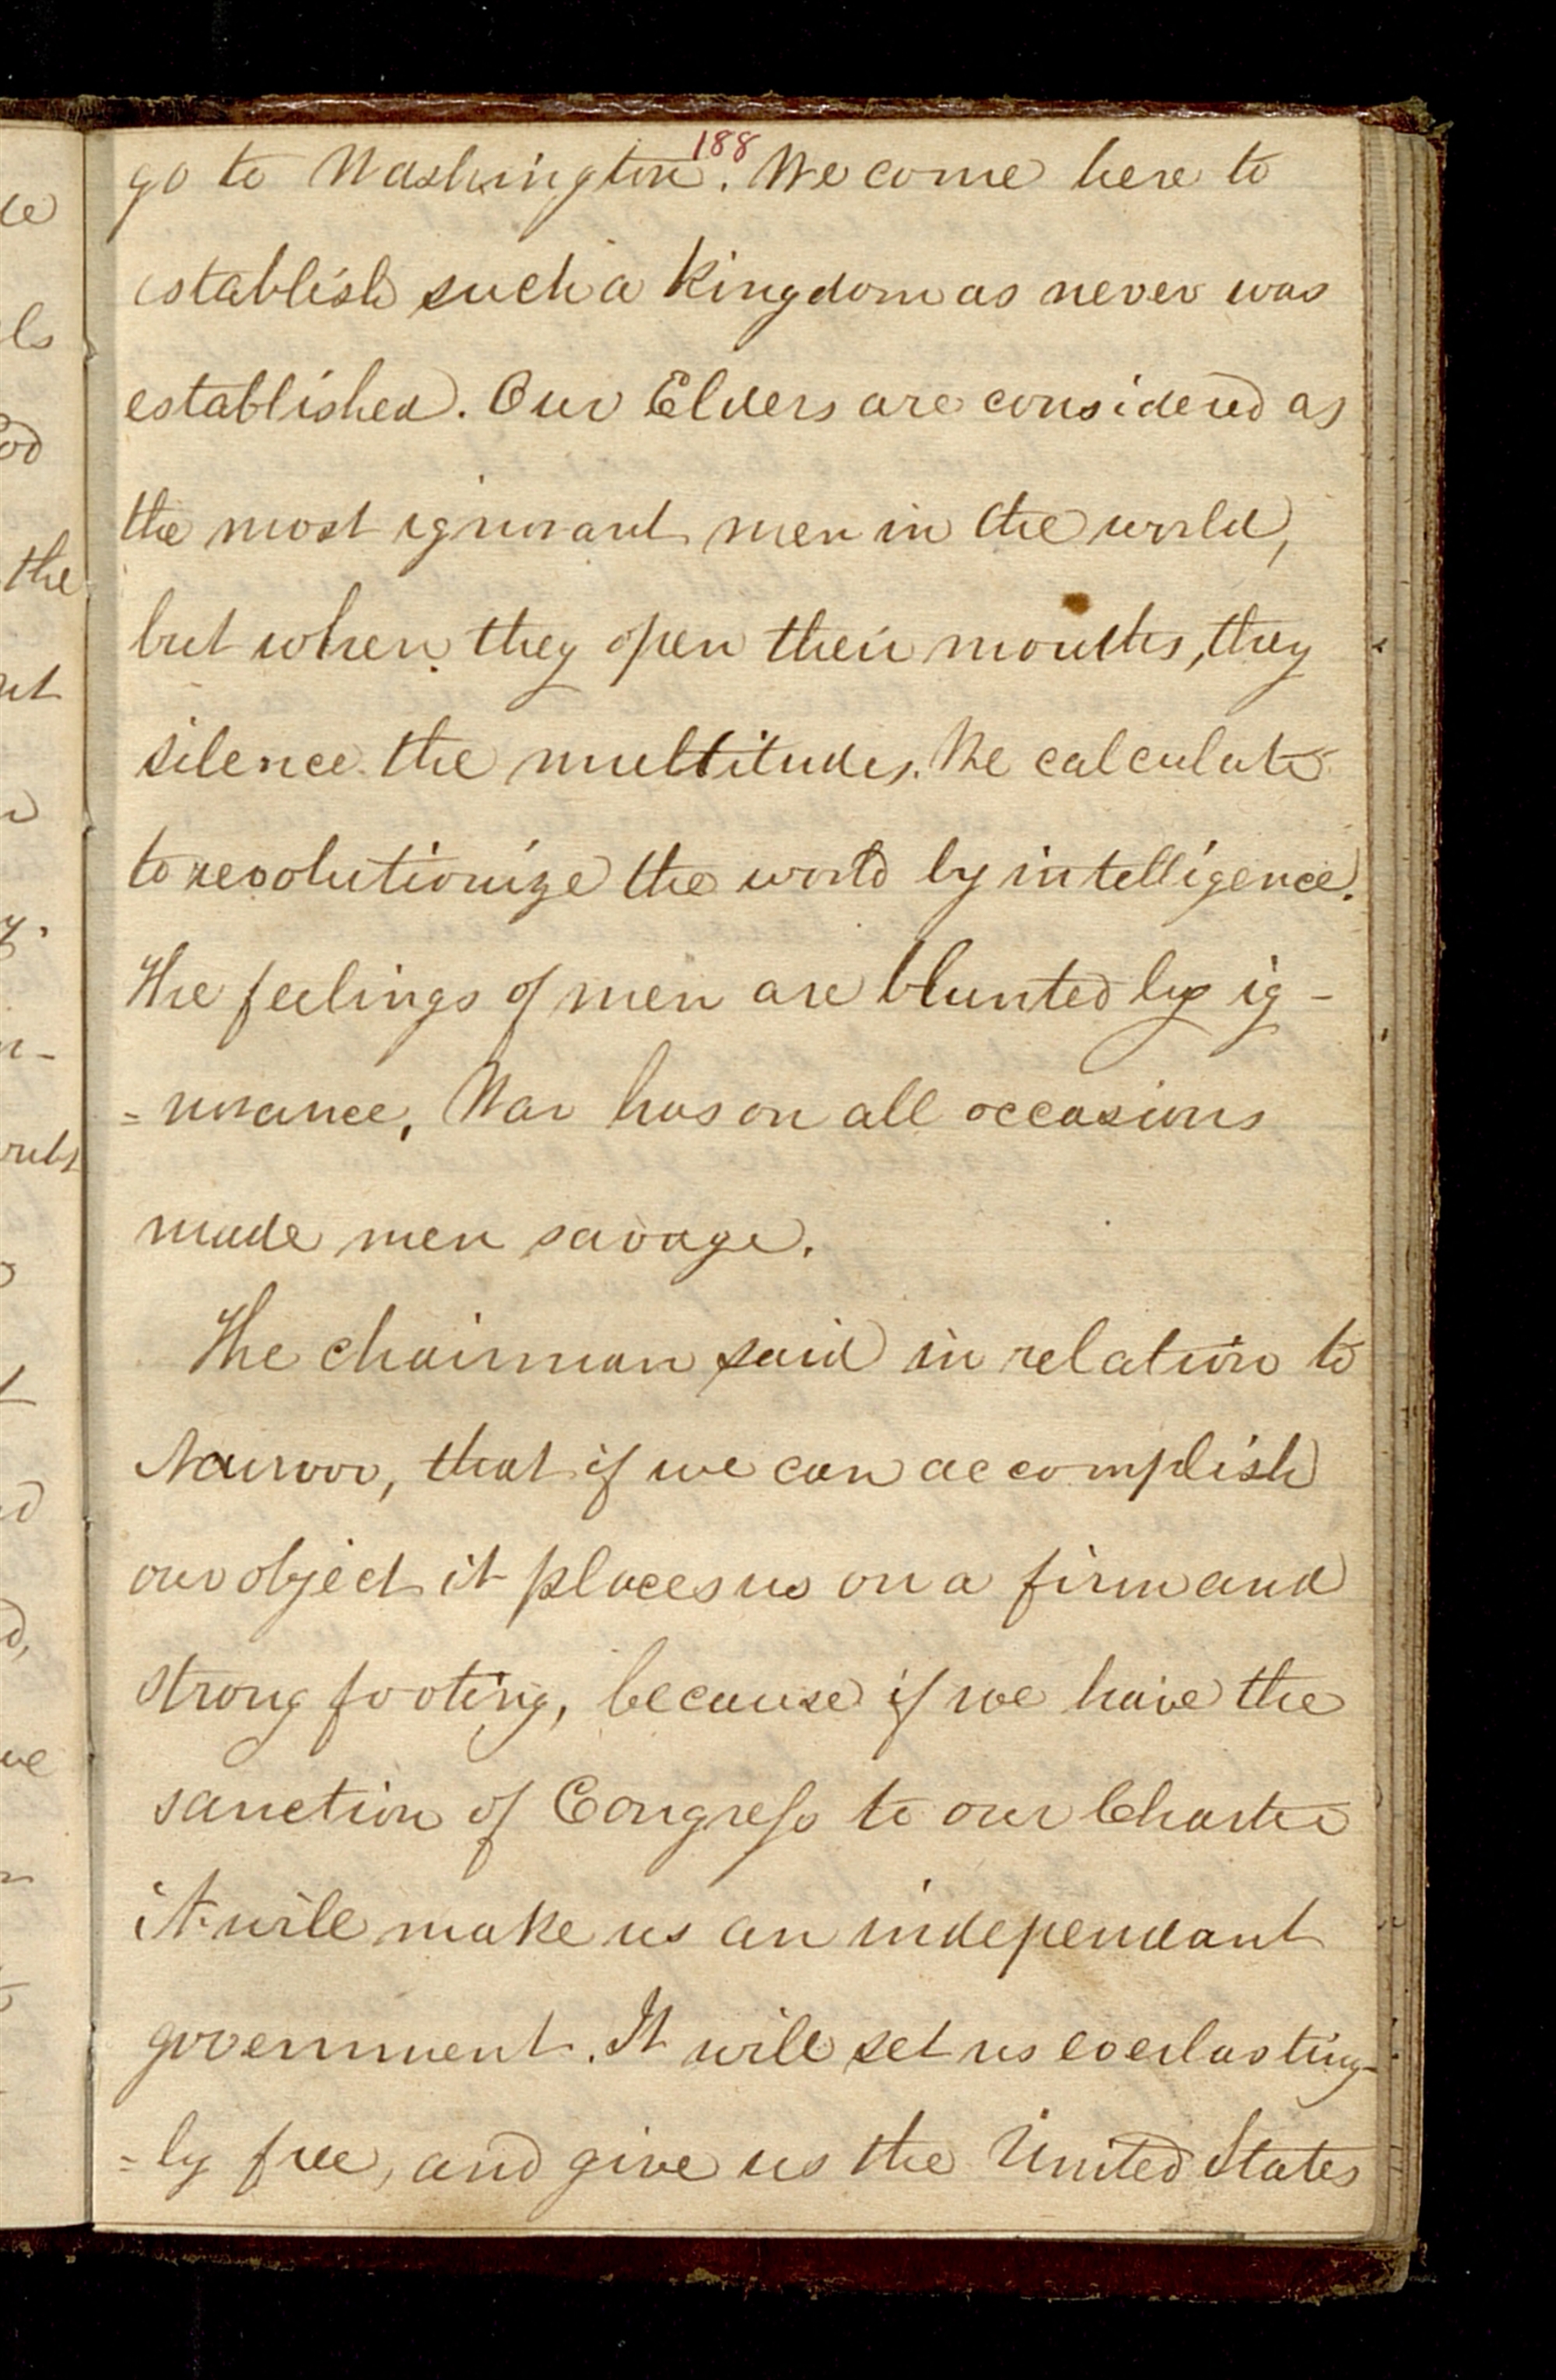 188
go to Washington. We come here to
establish such a kingdom as never was
established. Our Elders are considered as
the most ignorant men in the world,
but when they open their mouths, they
silence the multitudes. We calculate
to revolutionize the world by intelligence.
The feelings of men are blunted by ig-
=norance. War has on all occasions
made men savage.
The chairman said in relation to
Nauvoo, that if we can accomplish
our object it places us on a firm and
strong footing, because if we have the
sanction of Congress to our Charter
it will make us an independant
government. It will set us everlasting-
=ly free, and give us the United States